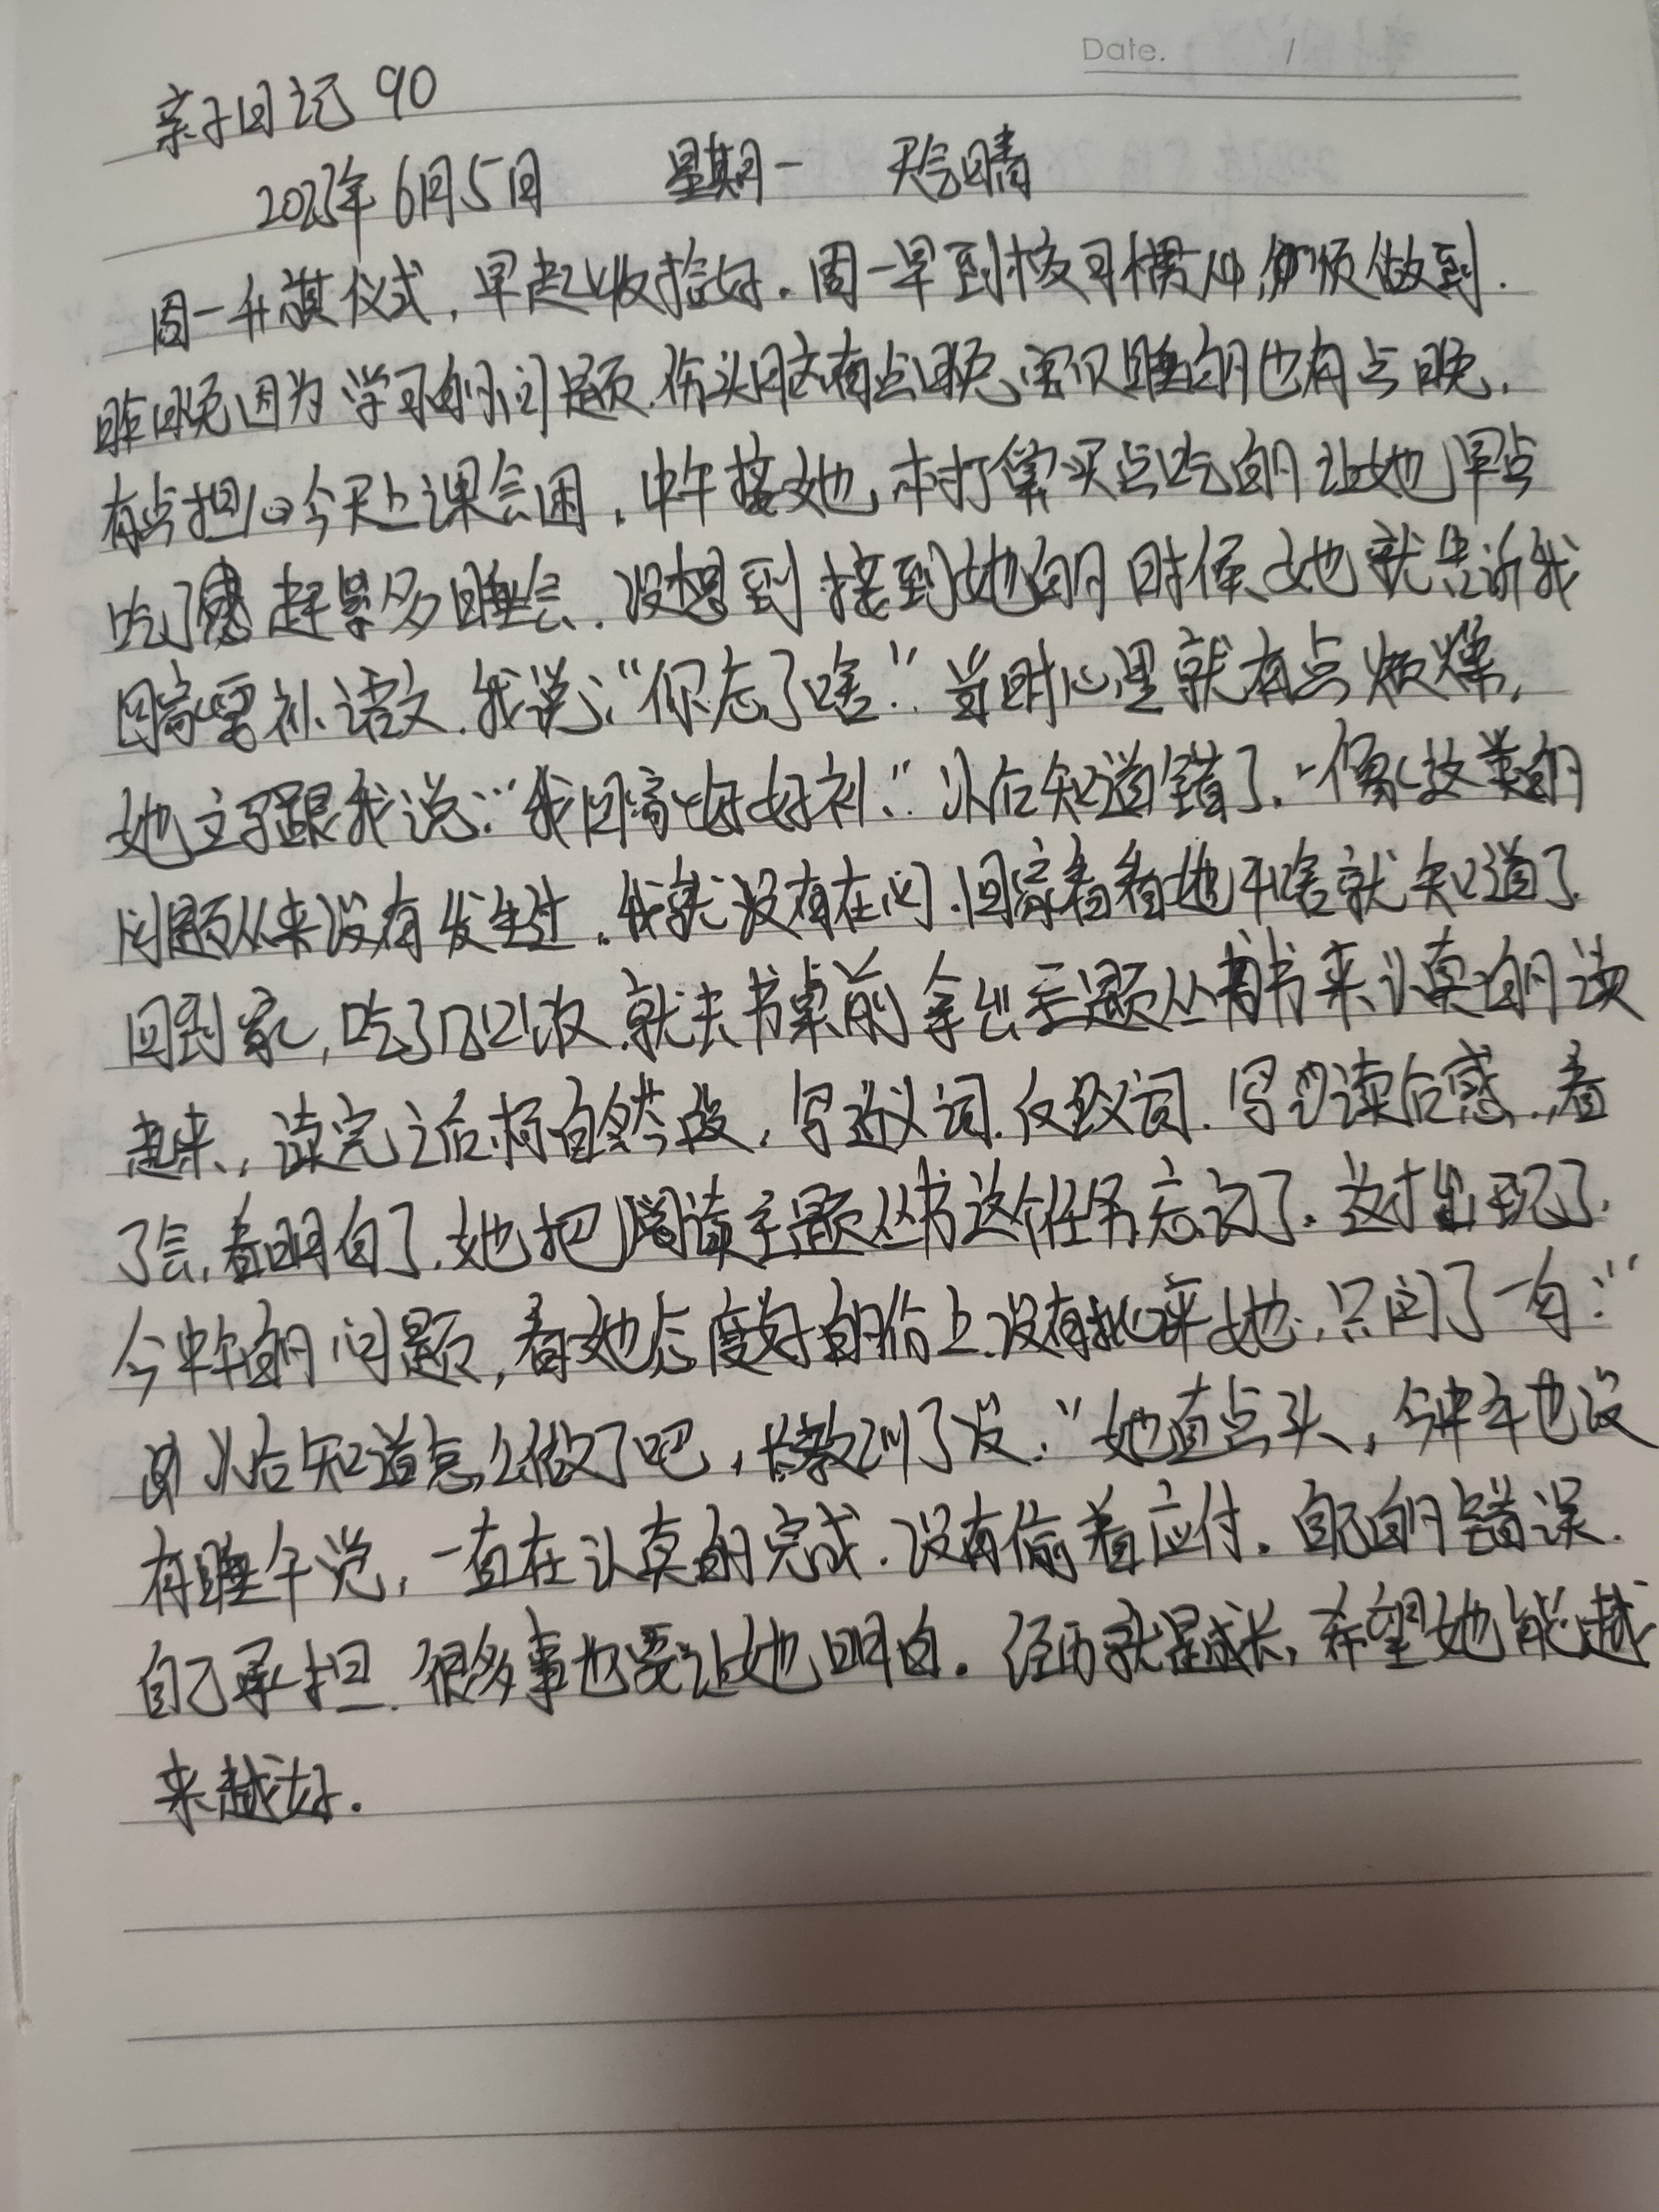 Date. /
亲子日记 90
2023年6月5日 星期一 天气晴
周一升旗仪式,早起收拾好。周一早到校习惯,做到.
昨晚因为学习的问题,有点晚,睡的也有点晚,
有点担心今天上课会困。中午接她,本打算买点吃的让她早点
吃了趁多睡会.没想到接到她的时候,她就告诉我
回家要补语文.我说:“你忘了啥”.当时心里就有点烦燥,
她立马跟我说:“我回家好好补.”以后知道错了.像这类的
问题从来没有发生过.我就没有在问.回家看看她干啥就知道了
回到家,吃了几口饭.就去书桌前拿出主题丛书来认真的读
起来,读完之后标自然段,写近义词.反义词.写读后感.,看
了会,看明白了.她把阅读主题丛书这个任务忘记了.这才出现了.
今中午的问题,看她态度好的份上没有批评她,只问了一句:“
以后知道怎么做了吧,长教训了没.”她直点头,今中午也没
有睡午觉,一直在认真的完成.没有偷着应付.自己的错误.
自己承担.很多事也要让她明白.经历就是成长,希望她能越
来越好.